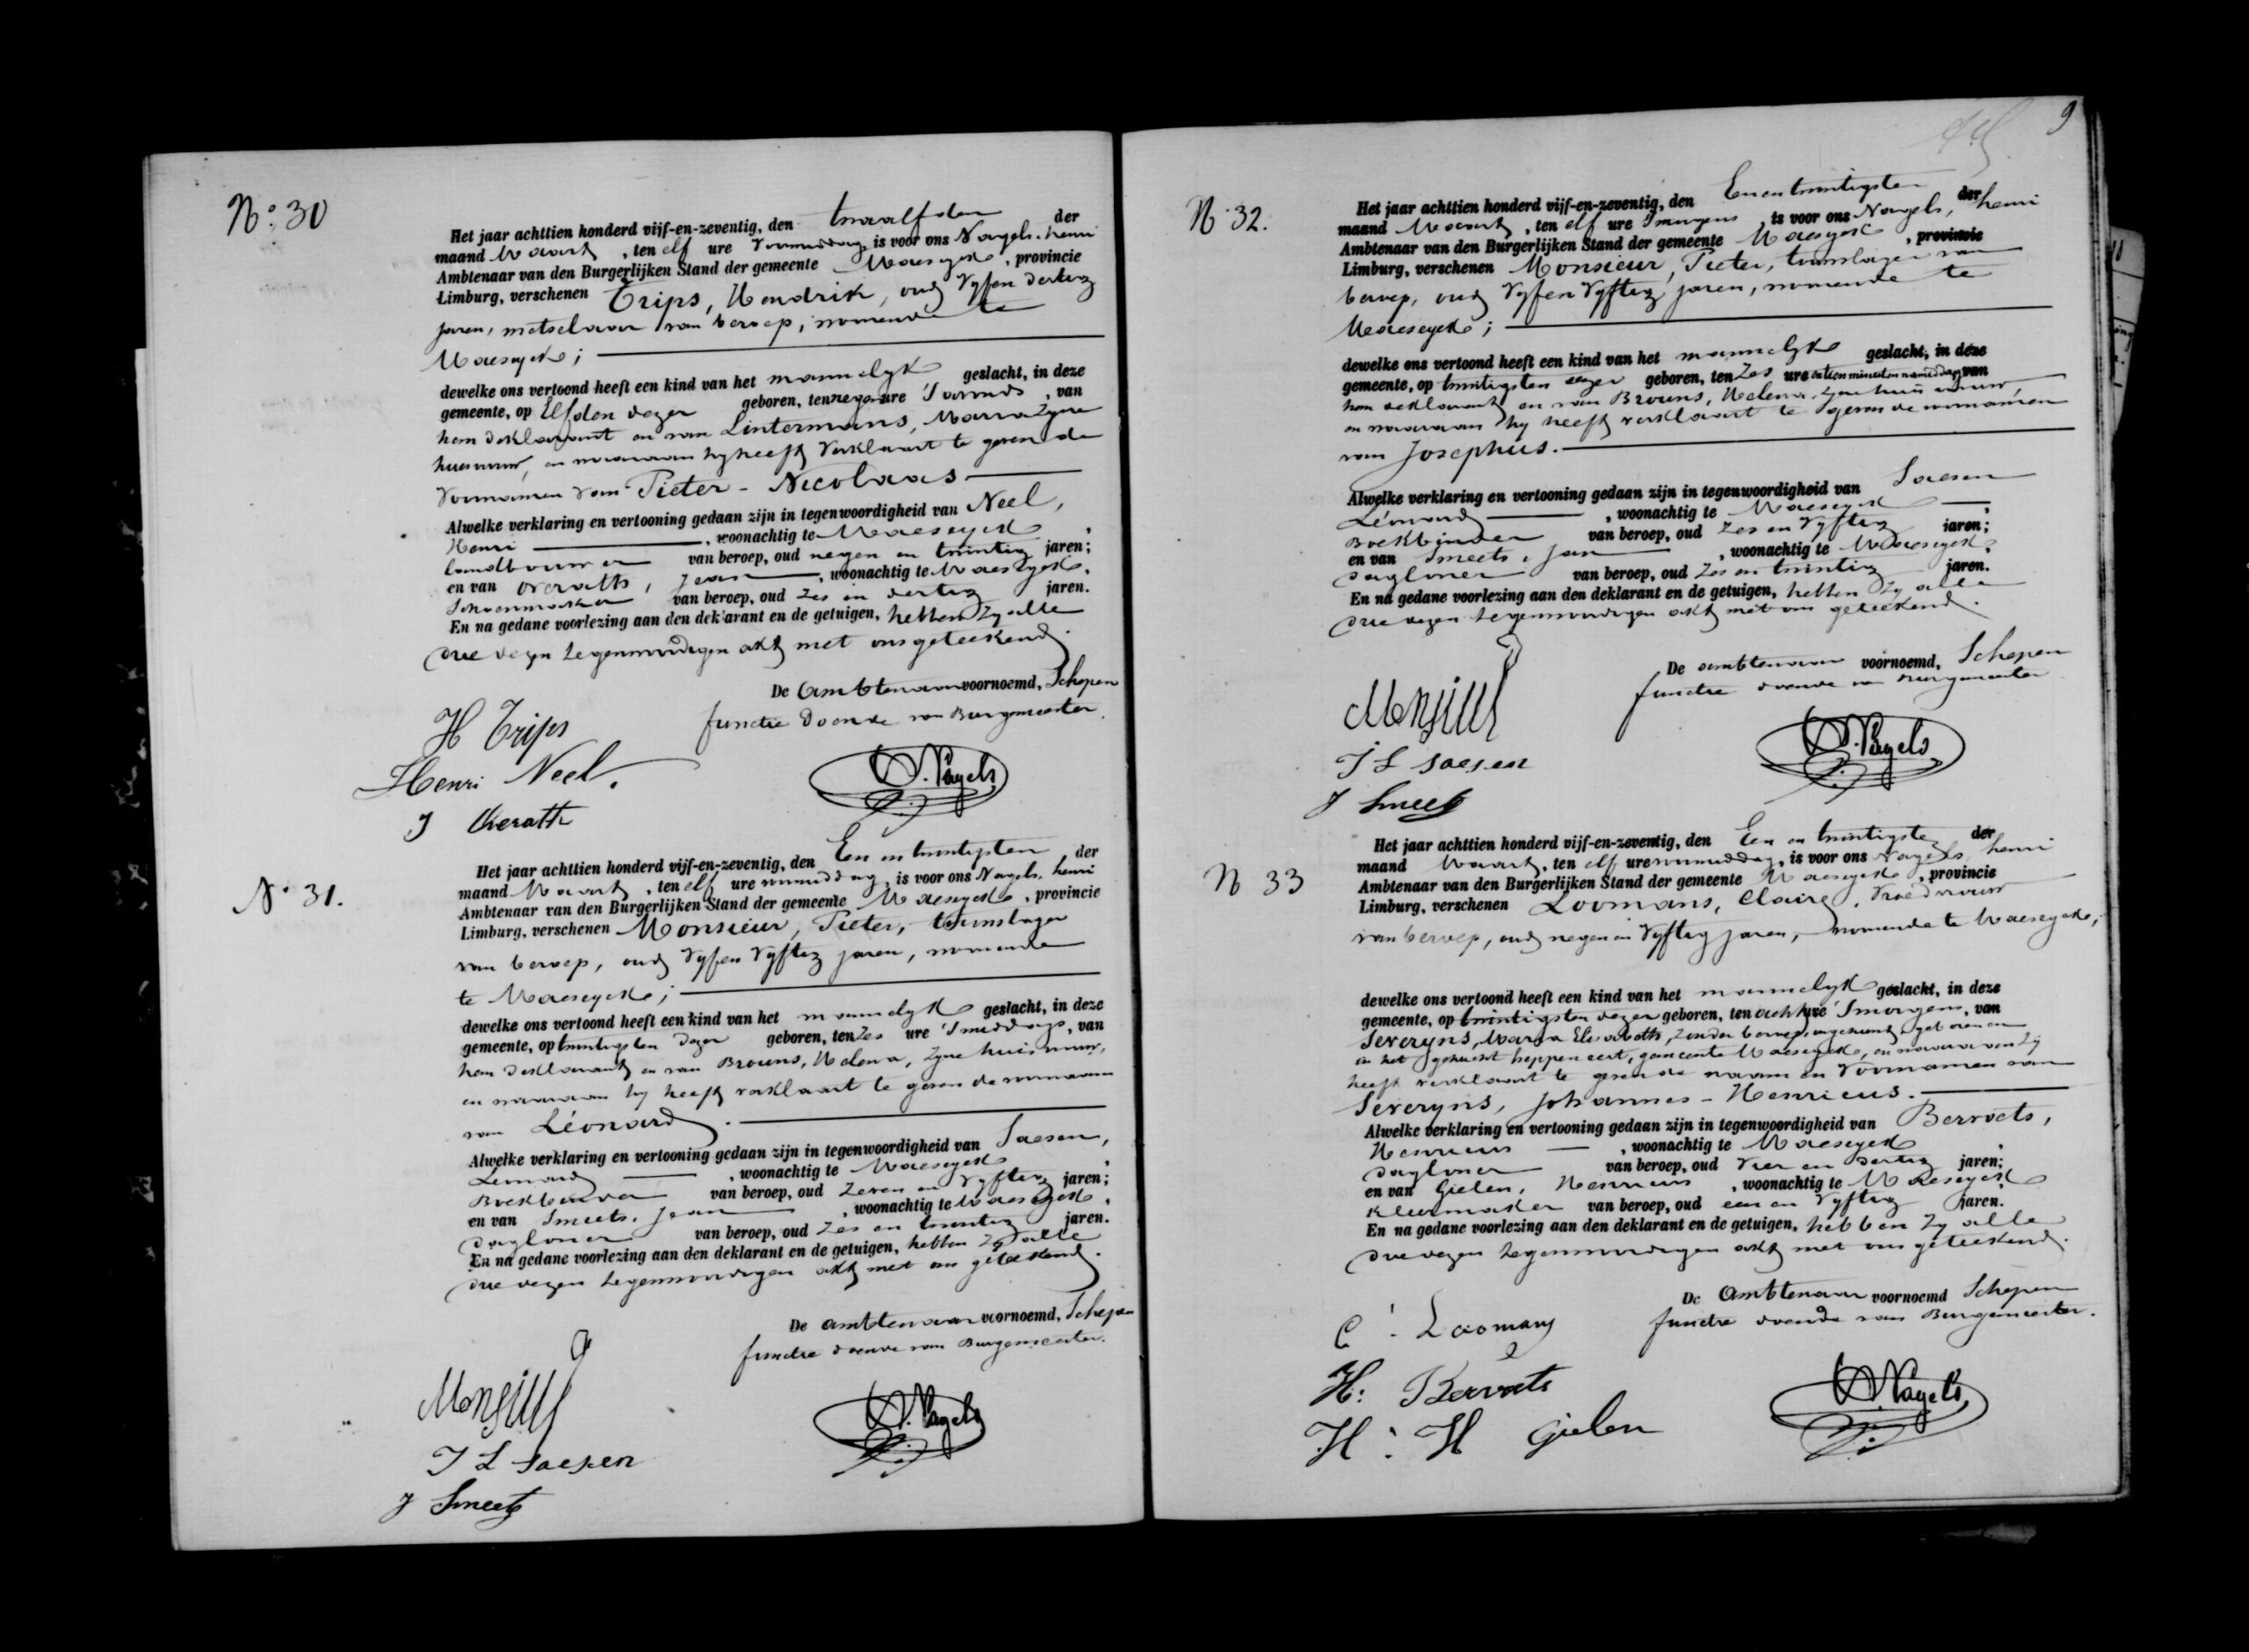 N° 30
Het jaar achttien honderd vijf-en-zeventig, den twaalfden der
maand Maart, ten elf ure voormiddag, is voor ons Nagels, henri
Ambtenaar van den Burgerlijken Stand der gemeente Maeseyck, provincie
Limburg, verschenen Trips, Hendrik, oud vyf en dertig
jaren, metselaar van beroep, wonende te
Maeseyck;
dewelke ons vertoond heeft een kind van het mannelyk geslacht, in deze
gemeente, op Elfden dezer geboren, ten negen ure 's avonds, van
hem deklarant en van Lintermans, Maria zyne
huisvrouw, en waaraan hy heeft verklaart te geven de
voornamen van Pieter - Nicolaas
Alwelke verklaring en vertooning gedaan zijn in tegenwoordigheid van Neel,
Henri, woonachtig te Maeseyck,
landbouwer van beroep, oud negen en twintig jaren;
en van Overaths, Jean, woonachtig te Maeseyck,
Schoenmaker van beroep, oud zes en dertig jaren.
En na gedane voorlezing aan den deklarant en de getuigen, hebben zy alle
drie dezen tegenwoordigen akt met ons geteekend.
De Ambtenaar voornoemd, Schepen
functie doende van Burgemeester.
H Trips
Henri Neel.
J Overath
H. Nagels
N° 31.
Het jaar achttien honderd vijf-en-zeventig, den Een en twintigsten der
maand Maart, ten elf ure voormiddag, is voor ons Nagels, henri
Ambtenaar van den Burgerlijken Stand der gemeente Maeseyck, provincie
Limburg, verschenen Monsieur, Pieter, tuinslager
van beroep, oud vyf en vyftig jaren, wonende
te Maeseyck;
dewelke ons vertoond heeft een kind van het mannelyk geslacht, in deze
gemeente, op twintigsten dezer geboren, ten zes ure 's middags, van
hem deklarant en van Brouns, Helena, zyne huisvrouw,
en waaraan hy heeft verklaart te geven de voornaam
van Léonard.
Alwelke verklaring en vertooning gedaan zijn in tegenwoordigheid van Saesen,
Léonard, woonachtig te Maeseyck,
Boekbinder van beroep, oud zeven en vyftig jaren;
en van Smeets, Jean, woonachtig te Maeseyck,
dagloner van beroep, oud zes en twintig jaren.
En na gedane voorlezing aan den deklarant en de getuigen, hebben zy alle
drie dezen tegenwoordigen akt met ons geteekend.
De ambtenaar voornoemd, Schepen
functie doende van Burgemeester.
Monsieur
J L Saesen
J Smeets
H. Nagels
9
N° 32.
Het jaar achttien honderd vijf-en-zeventig, den Een en twintigsten der
maand Maart, ten elf ure 's morgens, is voor ons Nagels, henri
Ambtenaar van den Burgerlijken Stand der gemeente Maeseyck, provincie
Limburg, verschenen Monsieur, Pieter, tuinslager van
beroep, oud vyf en vyftig jaren, wonende te
Maeseyck;
dewelke ons vertoond heeft een kind van het mannelyk geslacht, in deze
gemeente, op twintigsten dezer geboren, ten zes ure en tien minuten namiddag, van
hem deklarant en van Brouns, Helena, zyne huisvrouw,
en waaraan hy heeft verklaart te geven de voornamen
van Josephus.
Alwelke verklaring en vertooning gedaan zijn in tegenwoordigheid van Saesen
Léonard, woonachtig te Maeseyck,
Boekbinder van beroep, oud zes en vyftig jaren;
en van Smeets, Jan, woonachtig te Maeseyck,
dagloner van beroep, oud zes en twintig jaren.
En na gedane voorlezing aan den deklarant en de getuigen, hebben zy alle
drie dezen tegenwoordigen akt met ons geteekend.
De ambtenaar voornoemd, Schepen
functie doende van Burgemeester
Monsieur
J L Saesen
J Smeets
H. Nagels
N 33
Het jaar achttien honderd vijf-en-zeventig, den Een en twintigsten der
maand Maart, ten elf ure voormiddag, is voor ons Nagels, henri
Ambtenaar van den Burgerlijken Stand der gemeente Maeseyck, provincie
Limburg, verschenen Loomans, Claire, vroedvrouw
van beroep, oud negen en vyftig jaren, wonende te Maeseyck,
dewelke ons vertoond heeft een kind van het mannelyk geslacht, in deze
gemeente, op twintigsten dezer geboren, ten acht ure 's morgens, van
Severyns, Maria Elisabeth, zonder beroep, ongehuwd, geboren en
in het gehucht heppeneert, gemeente Maeseyck, en waaraan zy
heeft verklaart te geven de naam en voornamen van
Severyns, Johannes - Henricus.
Alwelke verklaring en vertooning gedaan zijn in tegenwoordigheid van Bervoets,
Henricus, woonachtig te Maeseyck,
dagloner van beroep, oud vier en dertig jaren;
en van Gielen, Henricus, woonachtig te Maeseyck
kleermaker van beroep, oud een en vyftig jaren.
En na gedane voorlezing aan den deklarant en de getuigen, hebben zy alle
drie dezen tegenwoordigen akt met ons geteekend.
De Ambtenaar voornoemd Schepen
functie doende van Burgemeester.
C. Loomans
H: Bervoets
H: H Gielen
H. Nagels